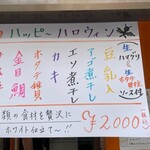 ハッピーハロウィン
生ハマグリ
生ホタテ
ソース付
豆乳入
アゴ煮干し
エソ煮干し
カキ
ホタテ貝
金目鯛
類の食材を贅沢に
ホワイト仕立て〜!!
¥2000